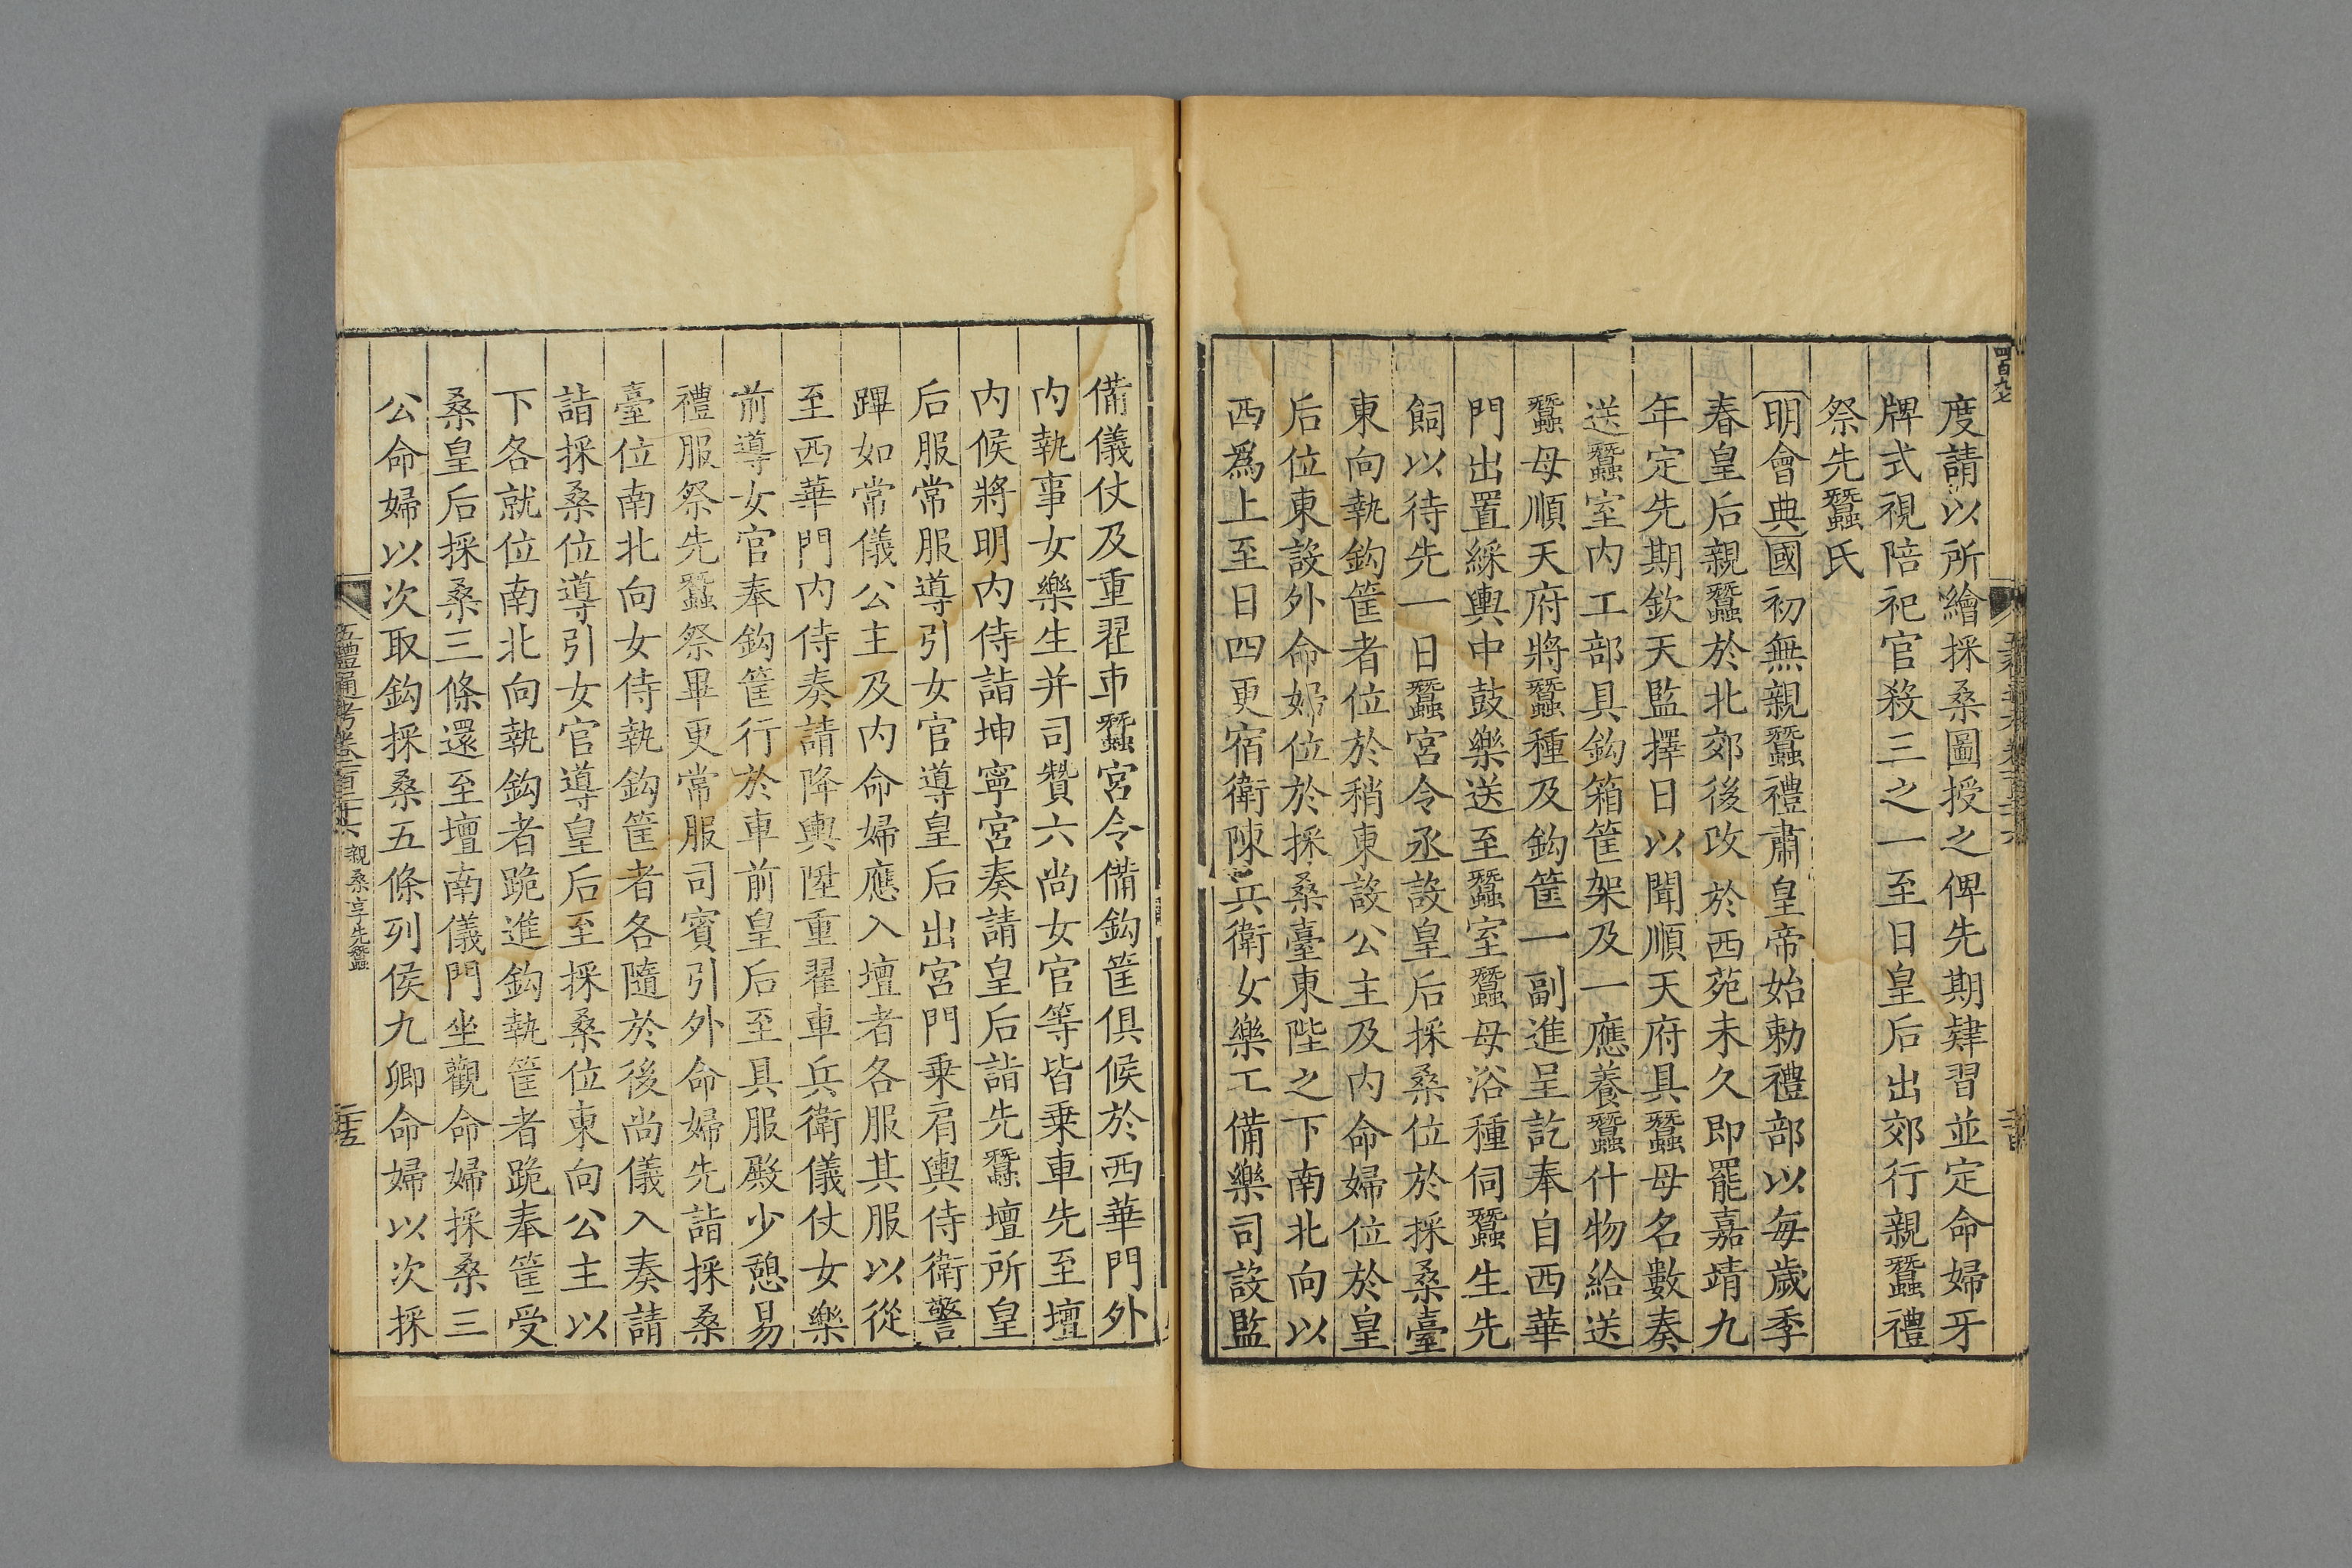 度請以所繪採桑圖授之俾先期肄習並定命婦牙
牌式視陪祀官殺三之一至日皇后出郊行親蠶禮
祭先蠶氏
明會典國初無親蠶禮肅皇帝始勅禮部以每歲季
春皇后親蠶於北郊後改於西苑未久即罷嘉靖九
年定先期欽天監擇日以聞順天府具蠶母名數奏
送蠶室内工部具鈎箱筐架及一應養蠶什物給送
蠶母順天府將蠶種及鈎筐一副進呈訖奉自西華
門出置綵輿中鼓樂送至蠶室蠶母浴種伺蠶生先
飼以待先一日蠶宮令丞設皇后採桑位於採桑臺
東向執鈎筐者位於稍東設公主及内命婦位於皇
后位東設外命婦位於採桑臺東陛之下南北向以
西爲上至日四更宿衛陳兵衛女樂工備樂司設監
備儀仗及重翟車蠶宮令備鈎筐俱候於西華門外
内執事女樂生并司贊六尚女官等皆乗車先至壇
内候將明内侍詣坤寧宮奏請皇后詣先蠶壇所皇
后服常服導引女官導皇后出宮門乗肩輿侍衛警
蹕如常儀公主及内命婦應入壇者各服其服以從
至西華門内侍奏請降輿陞重翟車兵衛儀仗女樂
前導女官奉鈎筐行於車前皇后至具服殿少憩易
禮服祭先蠶祭畢更常服司賓引外命婦先詣採桑
臺位南北向女侍執鈎筐者各隨於後尚儀入奏請
詣採桑位導引女官導皇后至採桑位東向公主以
下各就位南北向執鈎者跪進鈎執筐者跪奉筐受
桑皇后採桑三條還至壇南儀門坐觀命婦採桑三
公命婦以次取鈎採桑五條列侯九卿命婦以次採
五禮通考卷一百二十六 親桑享先蠶 二十五